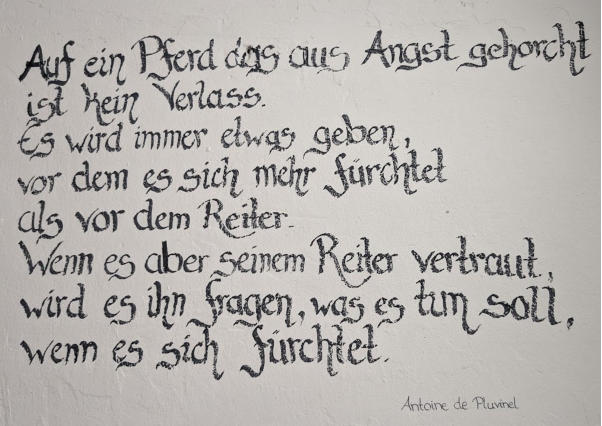 Auf ein Pferd das aus Angst gehorcht
ist kein Verlass.
Es wird immer etwas geben,
vor dem es sich mehr fürchtet
als vor dem Reiter.
Wenn es aber seinem Reiter vertraut,
wird es ihn fragen, was es tun soll,
wenn es sich fürchtet.
Antoine de Pluvinel